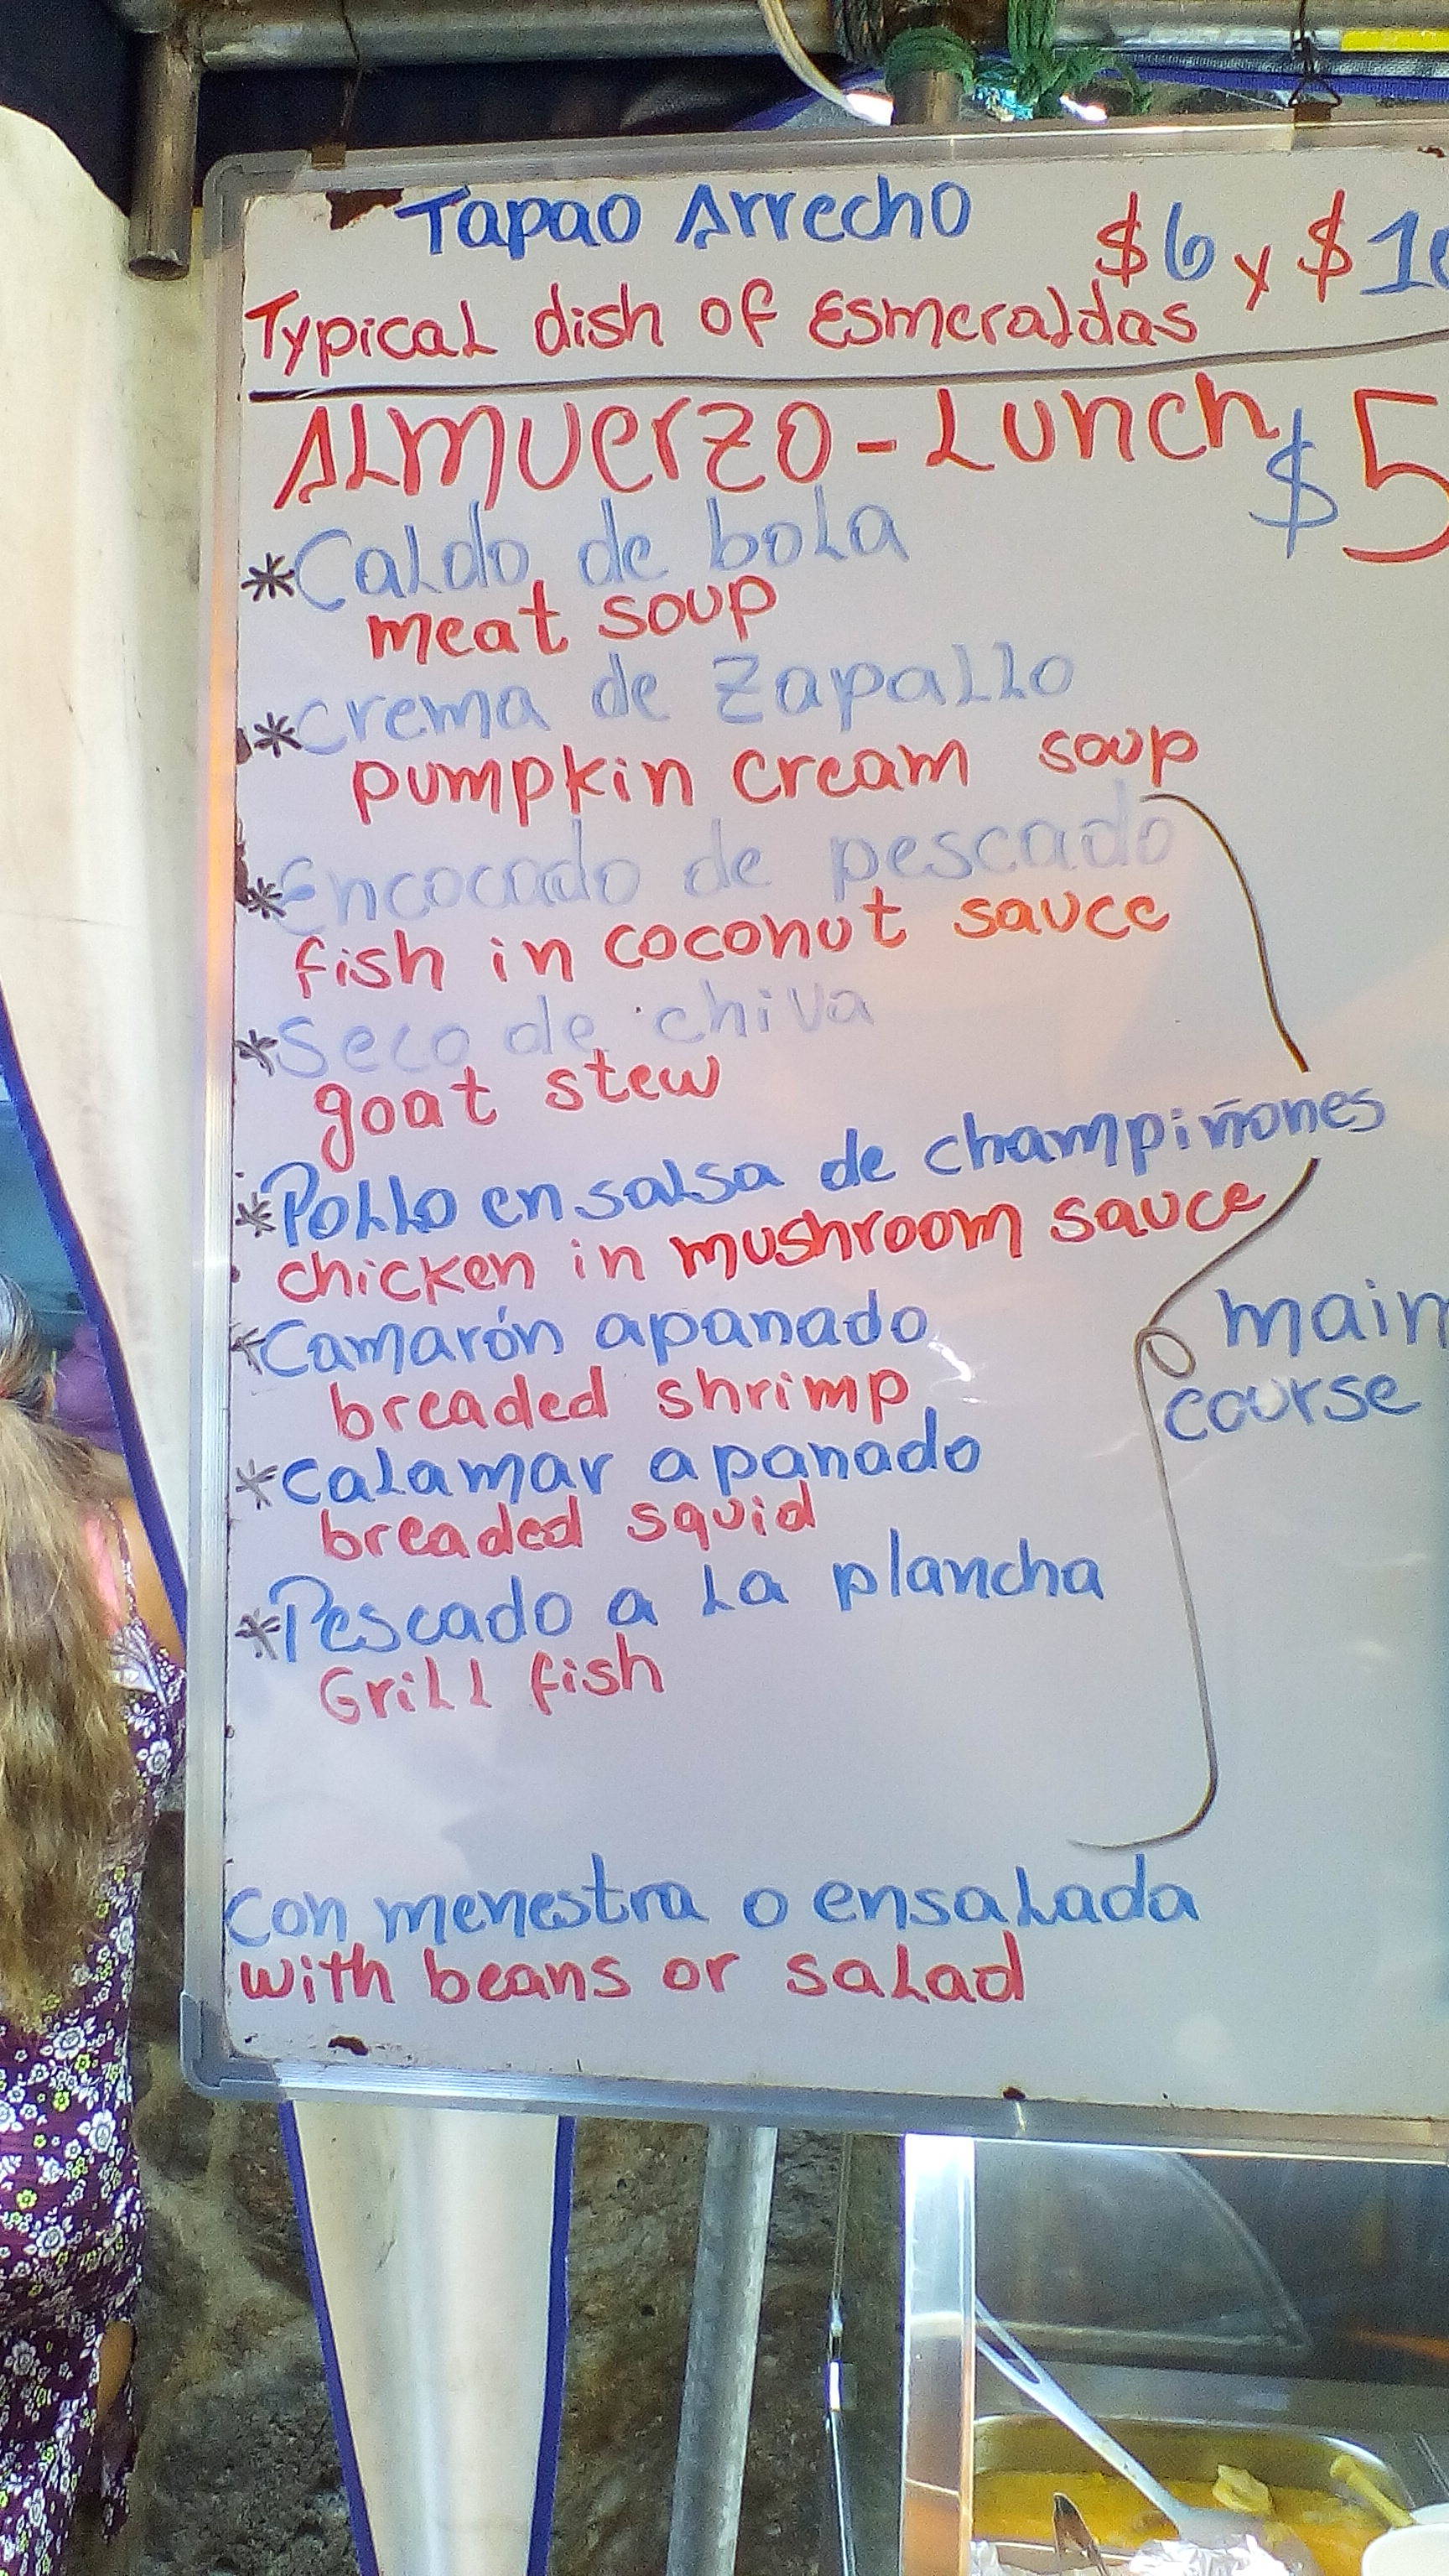 Tapao Arrecho
$6 y $10
Typical dish of Esmeraldas
ALMUERZO - LUNCH $5
*Caldo de bola
meat soup
*Crema de Zapallo
pumpkin cream soup
*Encocado de pescado
fish in coconut sauce
*Seco de chiva
goat stew
*Pollo en salsa de champiñones
chicken in mushroom sauce
*Camarón apanado
breaded shrimp
main
course
*Calamar apanado
breaded squid
*Pescado a la plancha
Grill fish
con menestra o ensalada
with beans or salad